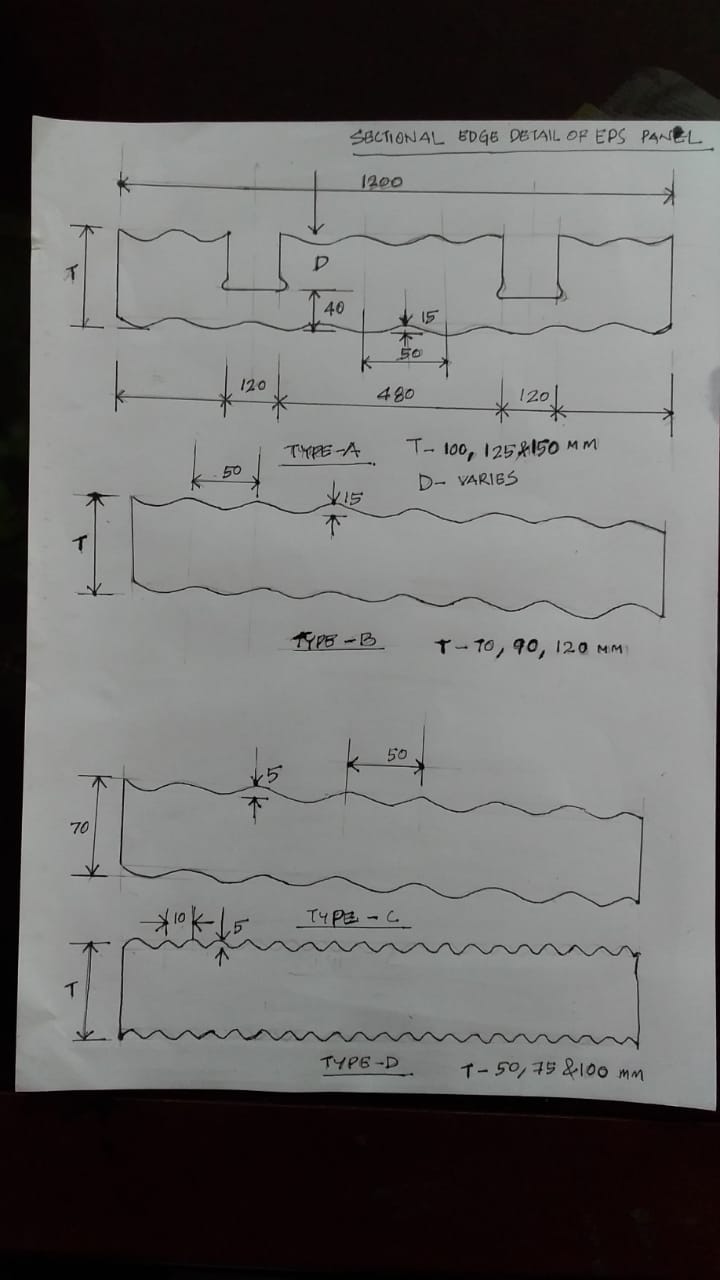 SECTIONAL EDGE DETAIL OF EPS PANEL
1200
T
D
40
15
50
120
480
120
TYPE-A
T- 100, 125 & 150 MM
D- VARIES
50
15
T
TYPE-B
T-70, 90, 120 MM
50
5
70
TYPE-C
10
5
T
TYPE-D
T-50, 75 & 100 MM